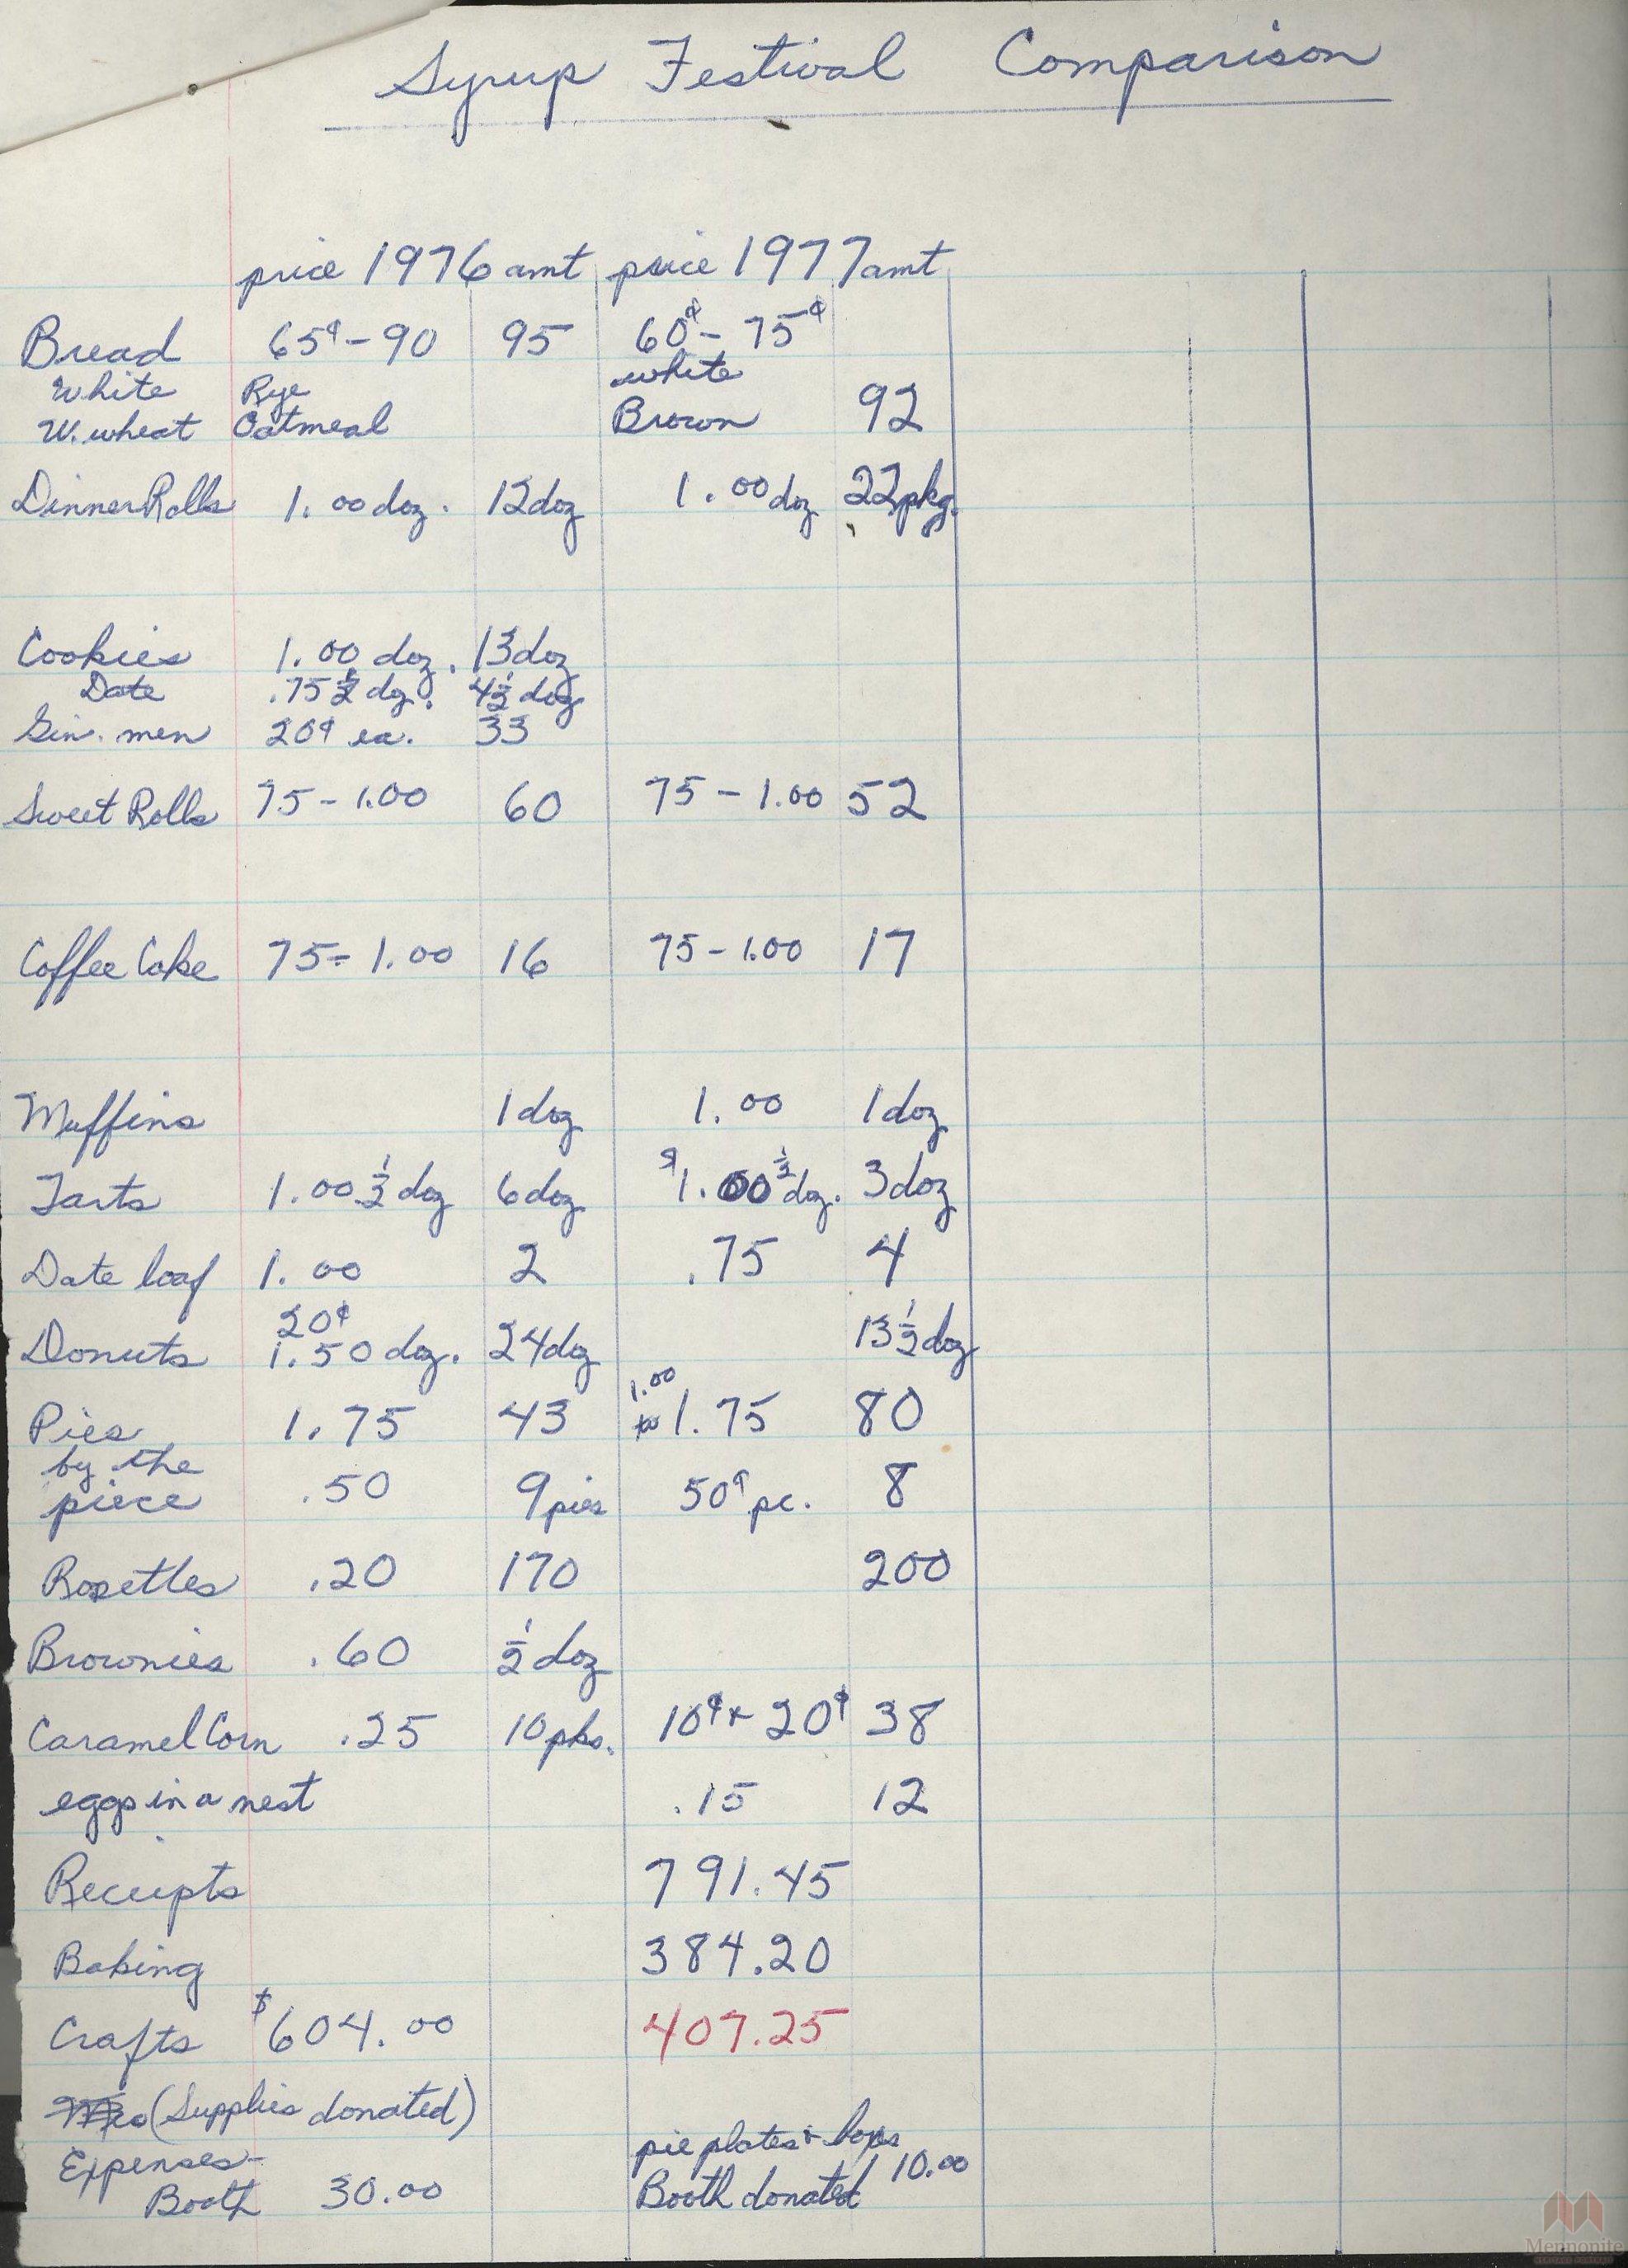 Syrup Festival Comparison
price 1976 amt price 1977 amt
Bread 65¢-90 95 60¢-75¢
White Rye white
W. wheat Oatmeal Brown 92
Dinner Rolls 1.00 doz. 12 doz 1.00 doz 22 pkg.
Cookies 1.00 doz. 13 doz
Date .75 ½ doz. 4½ doz
Gin. men 20¢ ea. 33
Sweet Rolls 75-1.00 60 75-1.00 52
Coffee Cake 75-1.00 16 75-1.00 17
Muffins 1 doz 1.00 1 doz
Tarts 1.00 ½ doz 6 doz $1.00 ½ doz. 3 doz
Date loaf 1.00 2 .75 4
20¢
Donuts 1.50 doz. 24 doz 13½ doz
Pies 1.75 43 1.00 to 1.75 80
by the
piece .50 9 pies 50¢ pc. 8
Rosettes .20 170 200
Brownies .60 ½ doz
Caramel Corn .25 10 pks. 10¢ + 20¢ 38
eggs in a nest .15 12
Receipts 791.45
Baking 384.20
Crafts $604.00 407.25
(Supplies donated)
Expenses- pie plates + bags 10.00
Booth 30.00 Booth donated
Mennonite